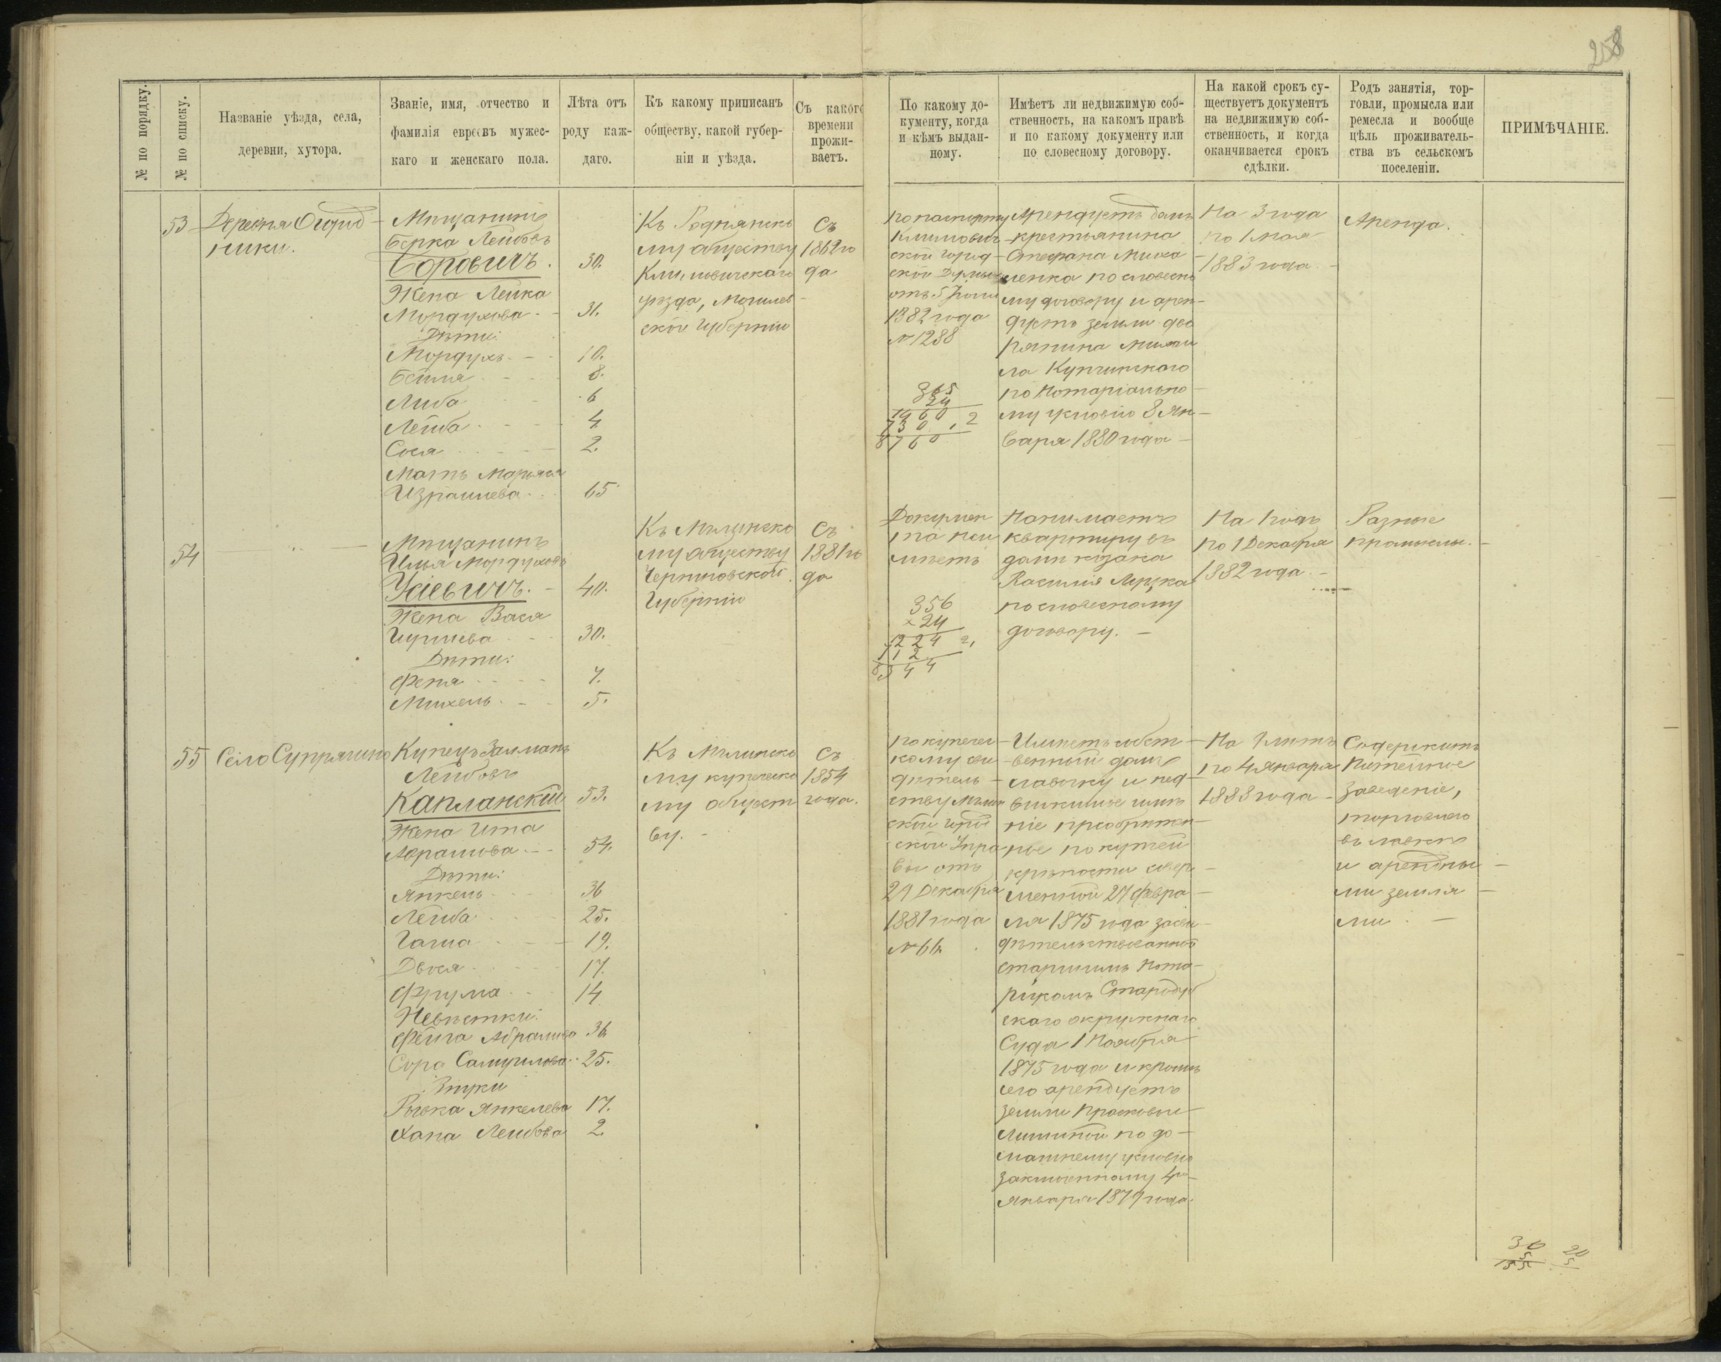 258
№ по порядку.
№ по списку.
Названіе уѣзда, села,
деревни, хутора.
Званіе, имя, отчество и
фамилія евреевъ мужес-
каго и женскаго пола.
Лѣта отъ
роду каж-
даго.
Къ какому приписанъ
обществу, какой губер-
ніи и уѣзда.
Съ какого
времени
прожи-
ваетъ.
По какому до-
кументу, когда
и кѣмъ выдан-
ному.
Имѣетъ ли недвижимую соб-
ственность, на какомъ правѣ
и по какому документу или
по словесному договору.
На какой срокъ су-
ществуетъ документъ
на недвижимую соб-
ственность, и когда
оканчивается срокъ
сдѣлки.
Родъ занятія, тор-
говли, промысла или
ремесла и вообще
цѣль проживатель-
ства въ сельскомъ
поселеніи.
ПРИМѢЧАНІЕ.
53
Деревня Огород-
ники.
Мѣщанинъ
Берка Лейбовъ
Соровичъ. 30.
Жена Лейка
Мордухова 31.
Дѣти:
Мордухъ 10.
Бейля 8.
Либа 6
Лейба 4
Сося 2.
Мать Марьяся
Израилева 65
Къ Роднянско
му обществу
Климовичскаго
уѣзда, Могилев-
ской Губерніи
Съ
1862 го
да
по паспорту
Климович-
ской город-
ской Думы
отъ 5 Іюня
1882 года
№ 1288
365
24
1460
730
8760
Арендуетъ домъ
крестьянина
Степана Миха
ленка по словесно
му договору и арен-
дуетъ землю дво
рянина Михаи
ла Купчинского
по Нотаріально-
му условію 8 Ян-
варя 1880 года
На 3 года
по 1 мая
1883 года
Аренда.
54
Мѣщанинъ
Илья Мордуховъ
Усіевичъ. 40.
Жена Вася
Гиршева 30.
Дѣти:
Феня 7.
Михель 5.
Къ Мглинско
му обществу
Черниговской
Губерніи
Съ
1881 го
да
Докумен
та не и
мѣетъ
356
× 24
Нанимаетъ
квартиру въ
домѣ козака
Василія Луцка
по словесному
договору.
На 1 годъ
по 1 Декабря
1882 года
Разные
промыслы.
55
Село Супрягино
Купецъ Залманъ
Лейбовъ
Капланскій 53.
Жена Ита
Абрамова 54.
Дѣти:
Янкель 36
Лейба 25.
Гагиа 19.
Двося 17.
Фрума 14
Невѣстки:
Фейга Абрамова 36
Сора Самуилова 25.
Внуки
Рывка Янкелева 17.
Хана Лейбова 2
Къ Мглинско
му купеческо
му общест
ву.
Съ
1854
года.
По купечес-
кому сви-
дѣтель-
ству Мглин
ской Город
ской Упра
вы отъ
21 Декабря
1881 года
№ 66.
Имѣетъ собст-
венный домъ
лавочку и нед-
вижимое имѣ
ніе пріобрѣтен-
ное по купчей
крѣпости совер-
шенной 27 Февра-
ля 1875 года засви-
дѣтельствованной
старшимъ Нота-
ріусомъ Стародуб
скаго окружнаго
Суда 1 Ноября
1875 года и кромѣ
сего арендуетъ
землю Прасковьи
Лишиной по до-
машнему условію
заключенному 4го
Января 1879 года.
На 9 лѣтъ
по 4 Января
1888 года
Содержитъ
Питейное
заведеніе,
торговлею
въ лавкѣ
и арендны-
ми земля-
ми
30
5
20
5